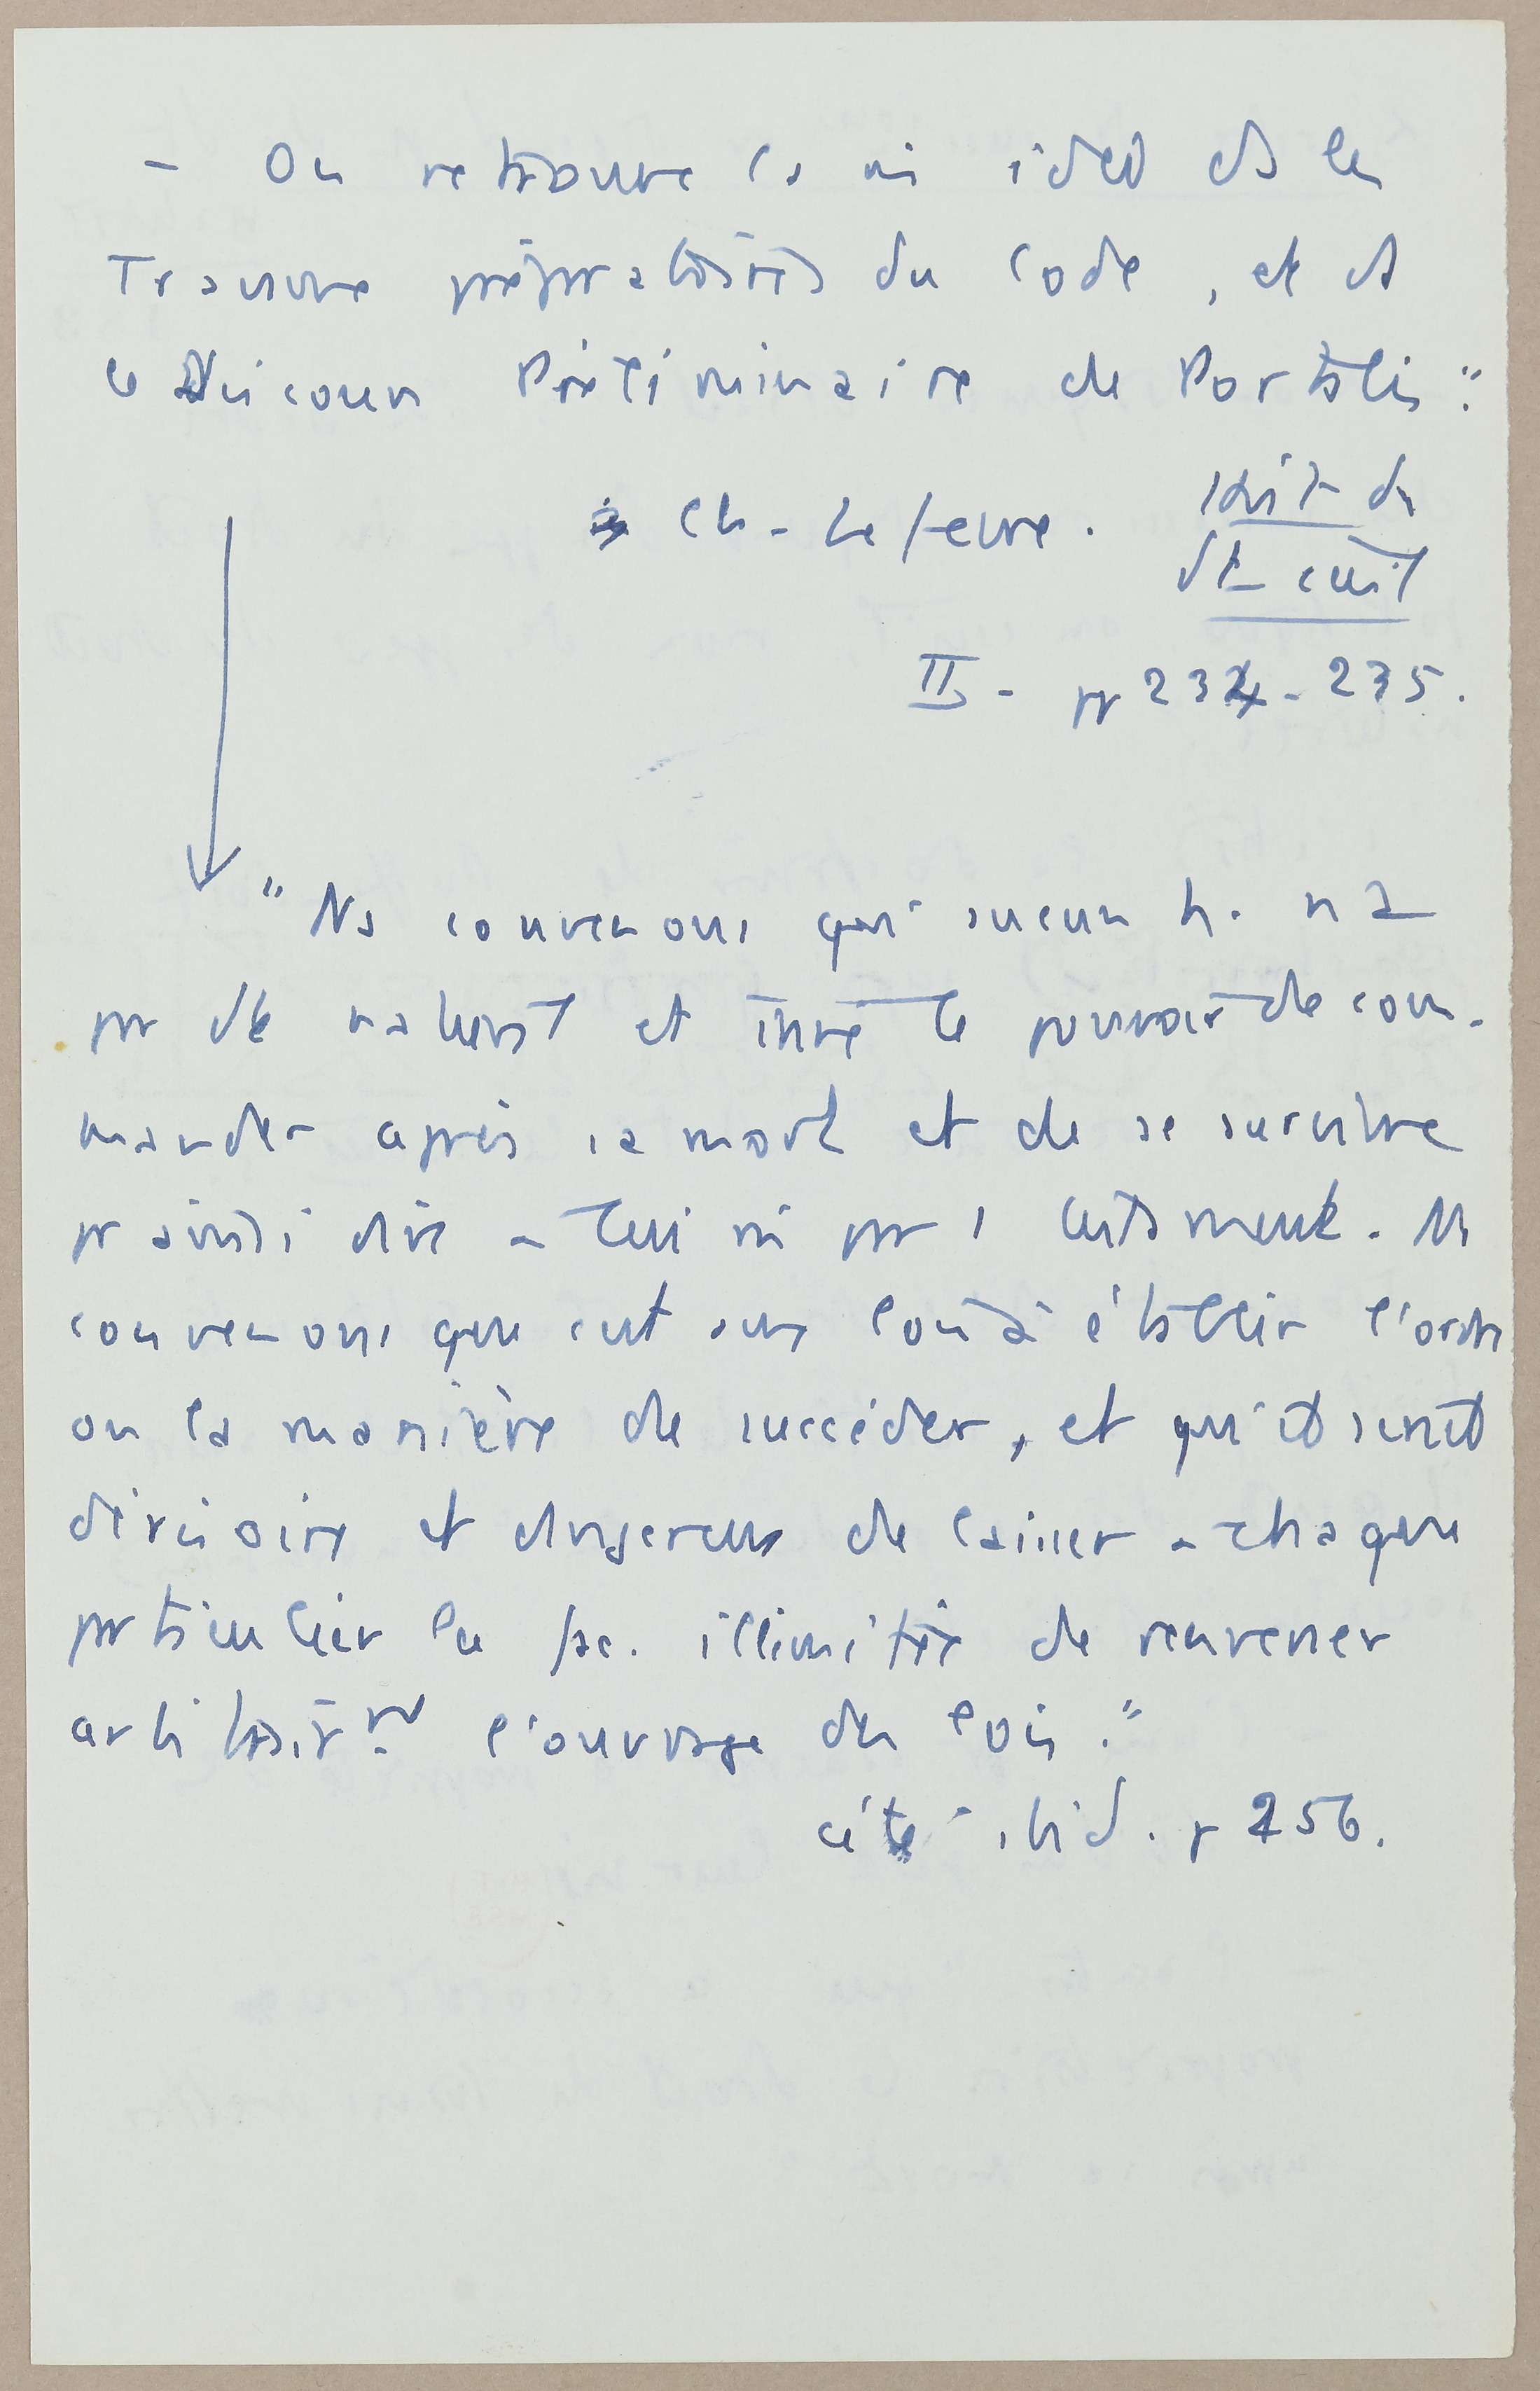 - On retrouve cs mi idées ds les
Travaux préparatoires du Code, et ds
le Discours Préliminaire de Portalis":
Ch. Lefevre. Hist du
dt civil
II - pp 234-235.
"Ns convenons qu'aucun h. n'a
pr dt naturel et inné le pouvoir de com-
mander après sa mort et de se survivre
pr ainsi dire à lui mê pr 1 testament. Ns
convenons que c'est aux lois à établir l'ordre
ou la manière de succéder, et qu'il serait
dérisoire et dangereux de laisser à chaque
particulier la fac. illimitée de renverser
arbitrairemt l'ouvrage des lois."
cité ibid. p 256.